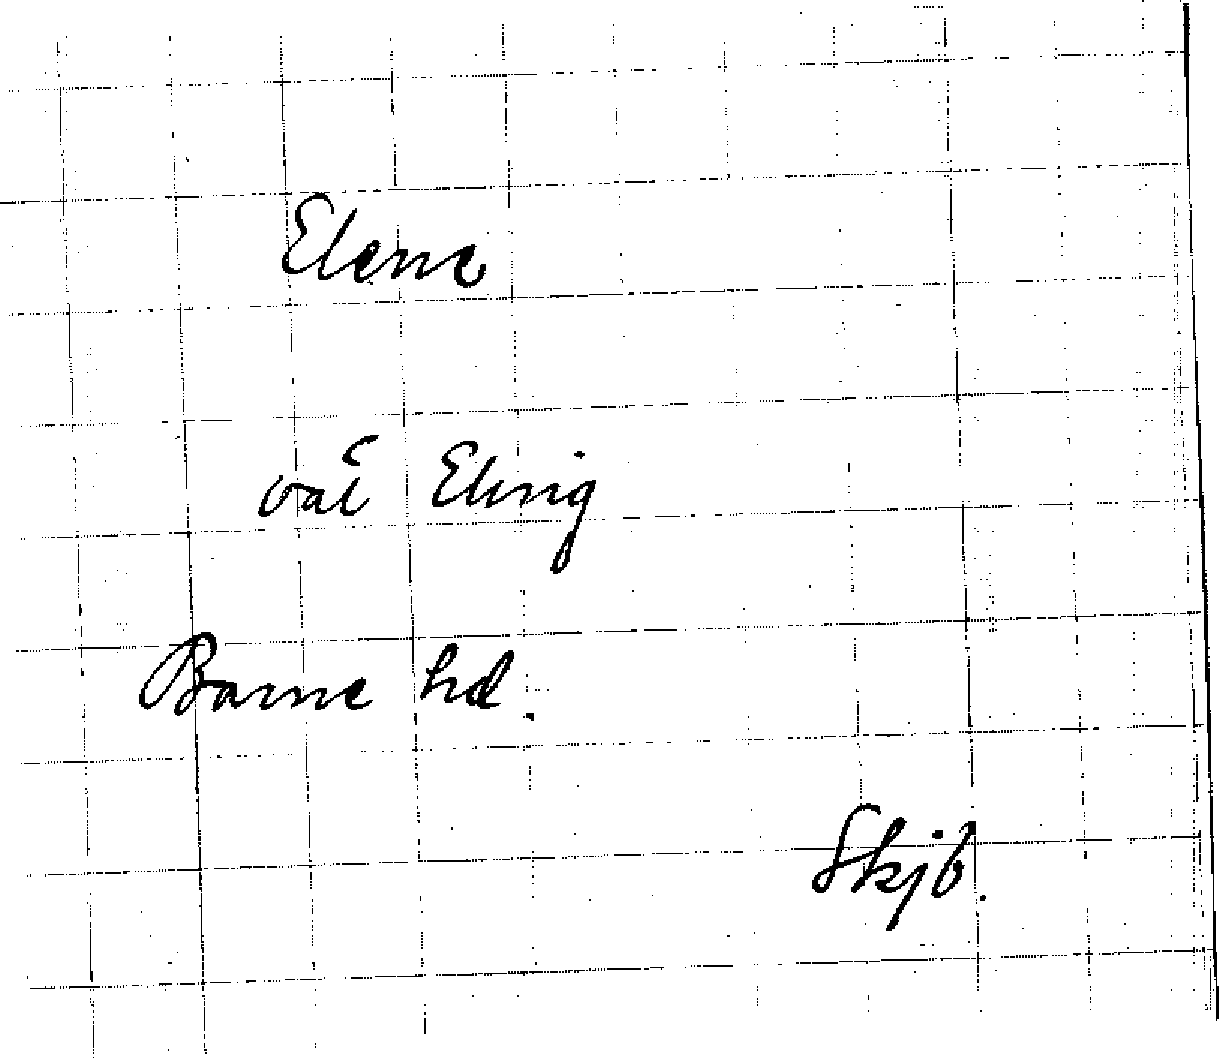 Elene
Eling
Barne hd.
Skjb.